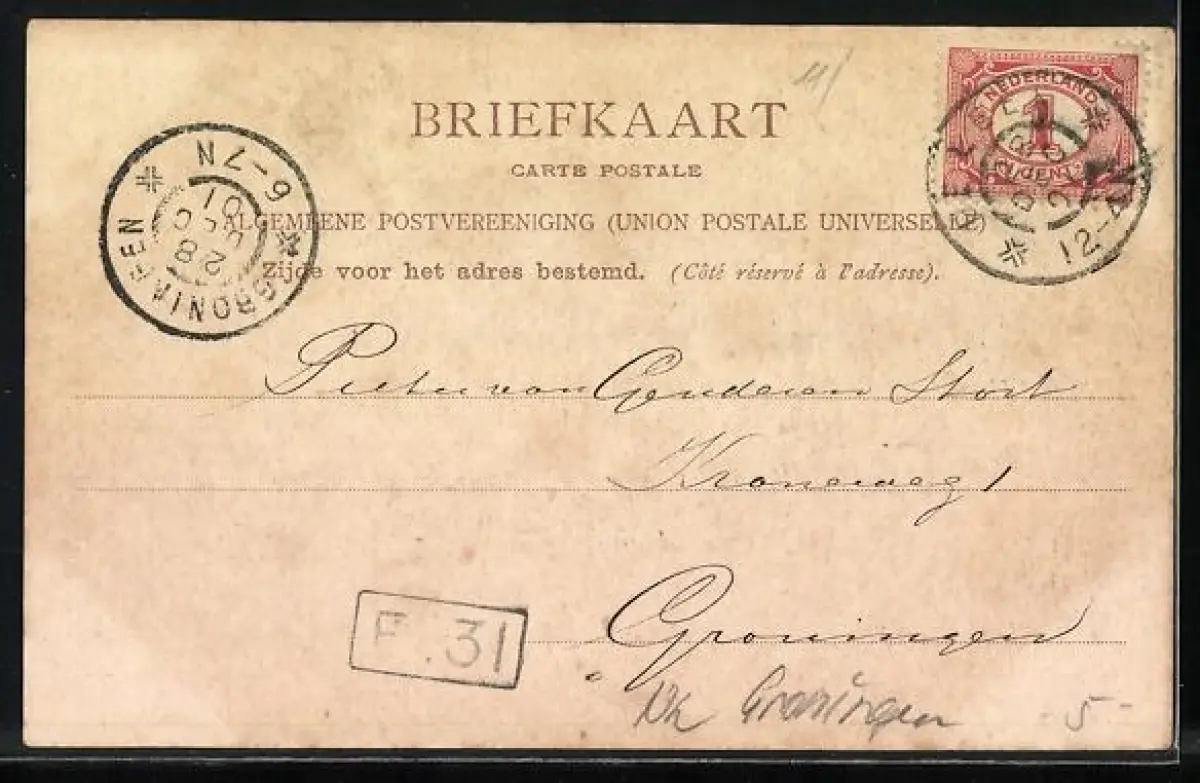 11/
BRIEFKAART
CARTE POSTALE
ALGEMEENE POSTVEREENIGING (UNION POSTALE UNIVERSELLE)
Zijde voor het adres bestemd. (Côté réservé à l'adresse).
NEDERLAND
1
CENT
12-4N
GRONINGEN
6-7N
28 DEC 01
Pieter van Genderen Stort
1
Groningen
F. 31
Groningen
- 5 -